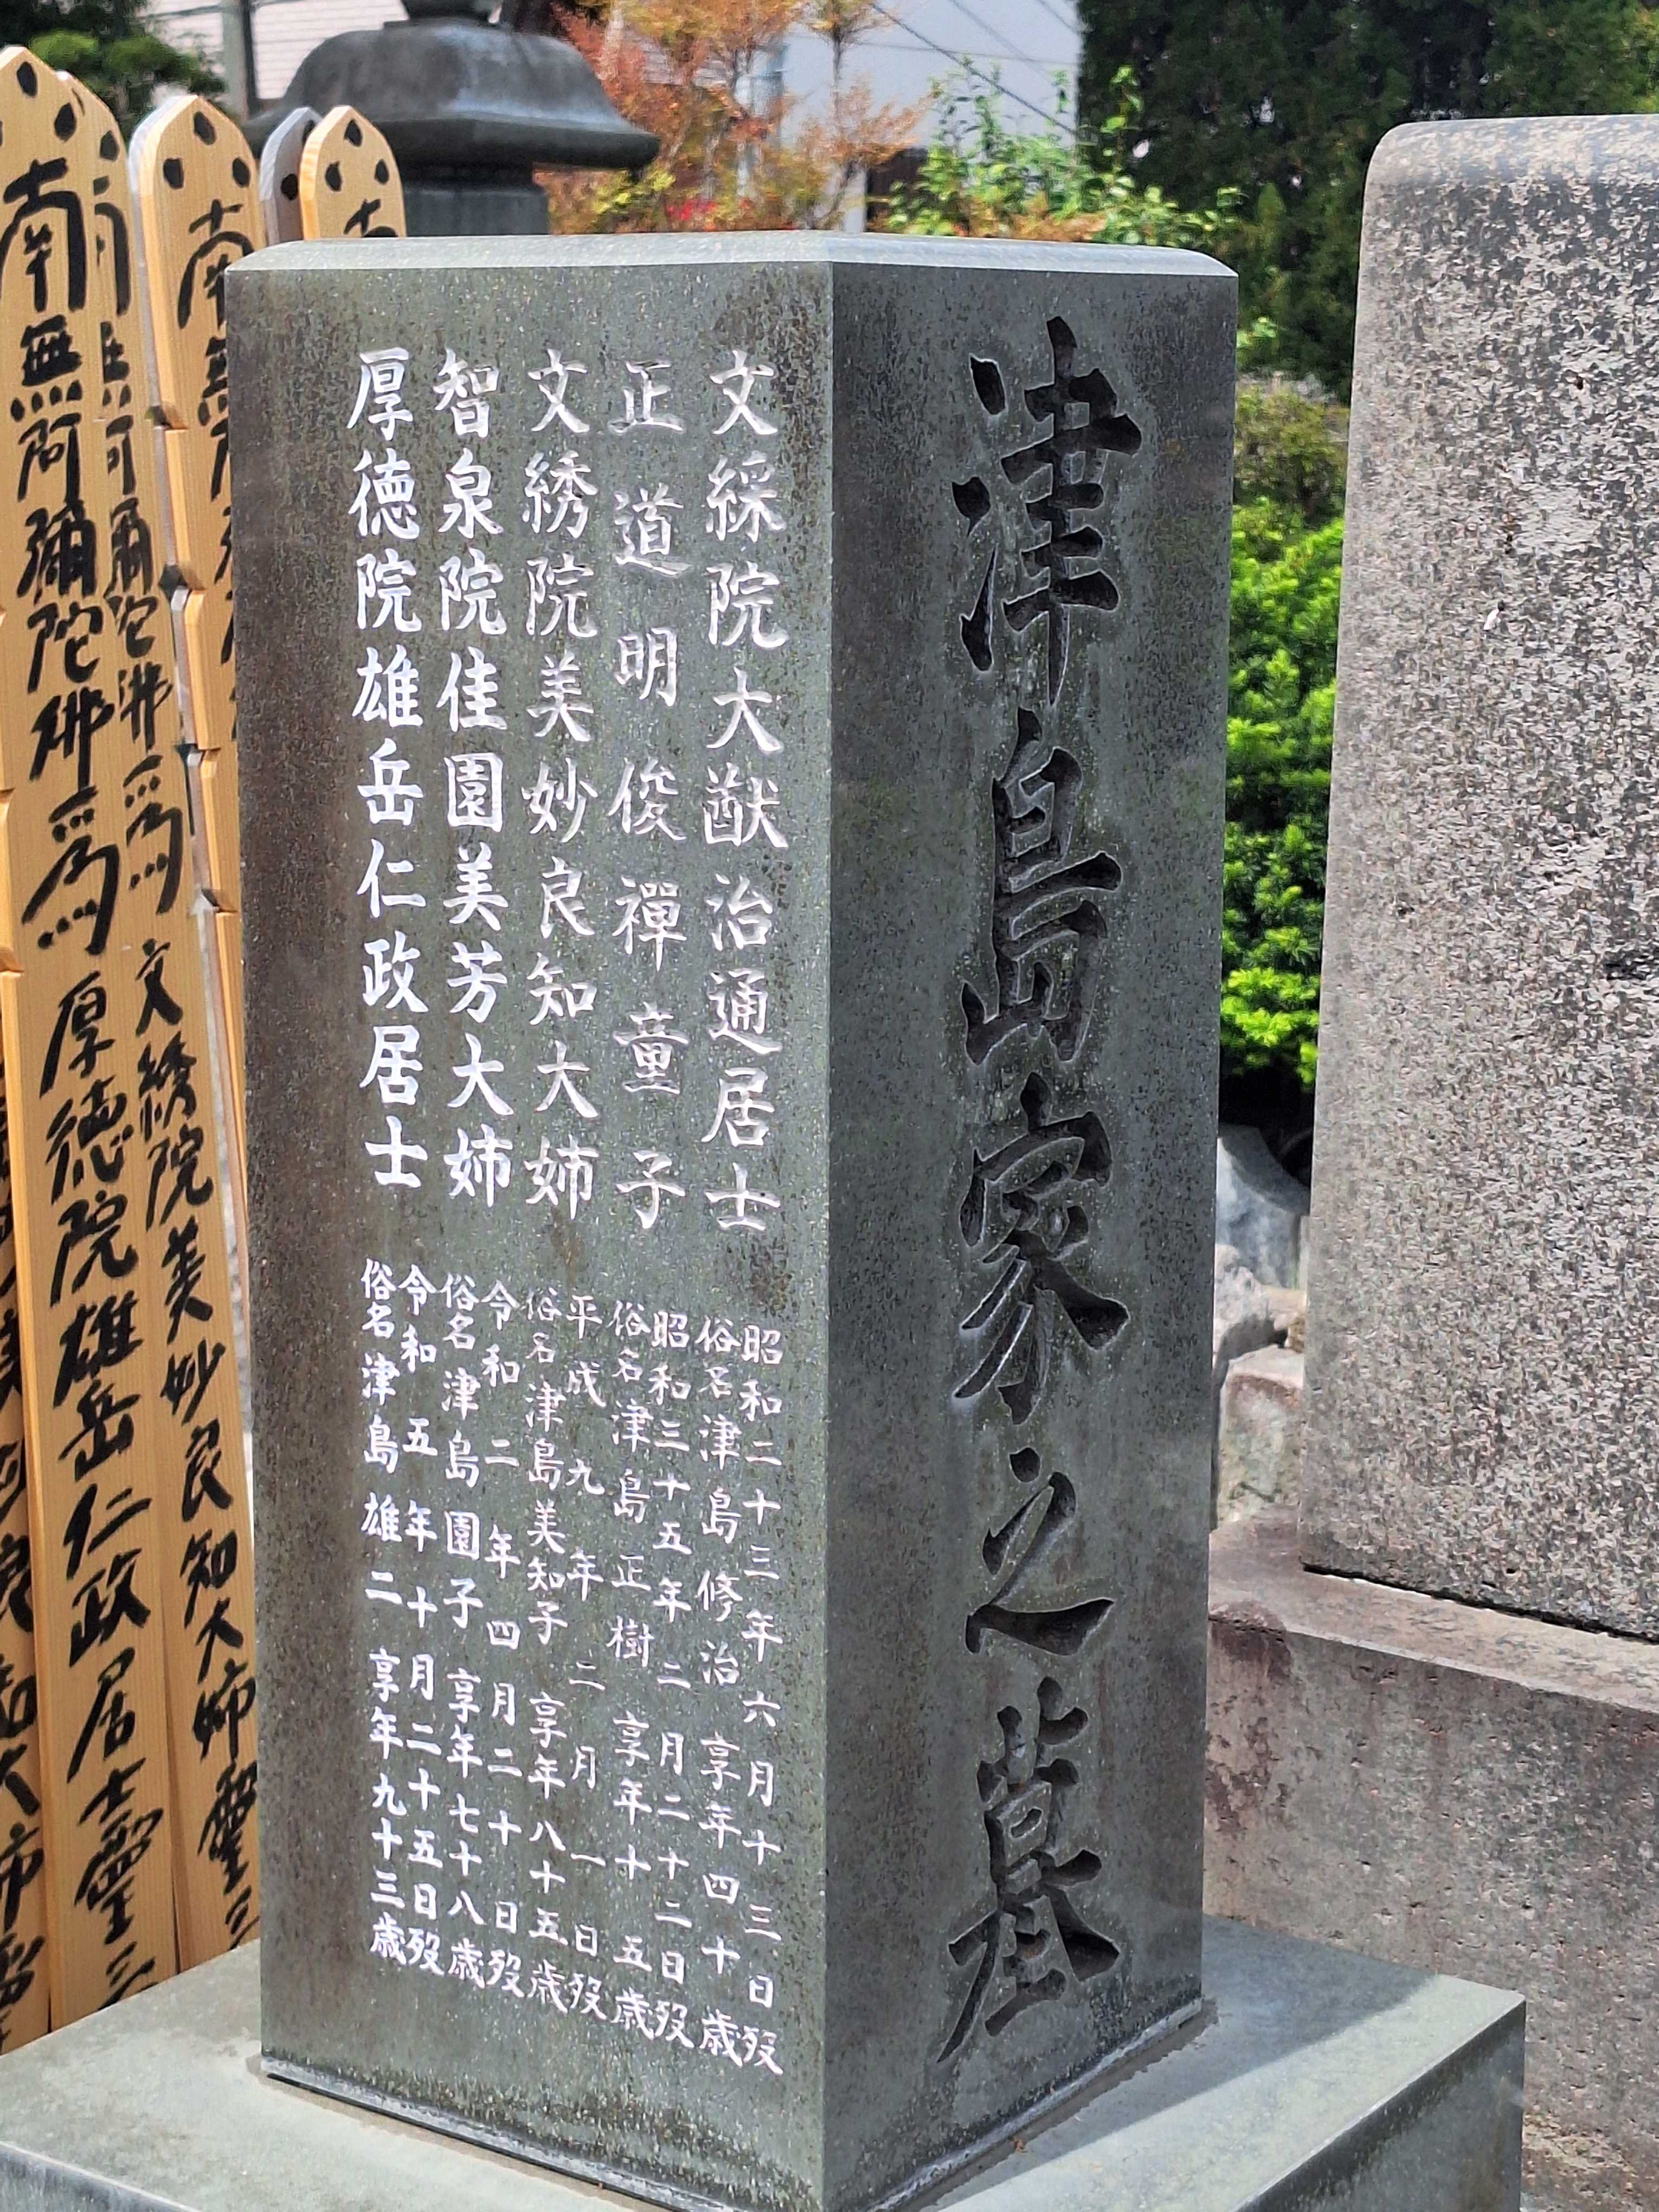 津島家之墓
文綵院大猷治通居士
昭和二十三年六月十三日歿
俗名津島修治 享年四十歳
正道明俊禪童子
昭和三十五年二月二十二日歿
俗名津島正樹 享年十五歳
文綉院美妙良知大姉
平成九年二月一日歿
俗名津島美知子 享年八十五歳
智泉院佳園美芳大姉
令和二年四月二十日歿
俗名津島園子 享年七十八歳
厚徳院雄岳仁政居士
令和五年十月二十五日歿
俗名津島雄二 享年九十三歳
南無
文綉院美妙良知大姉靈
南無阿彌陀佛為厚徳院雄岳仁政居士靈